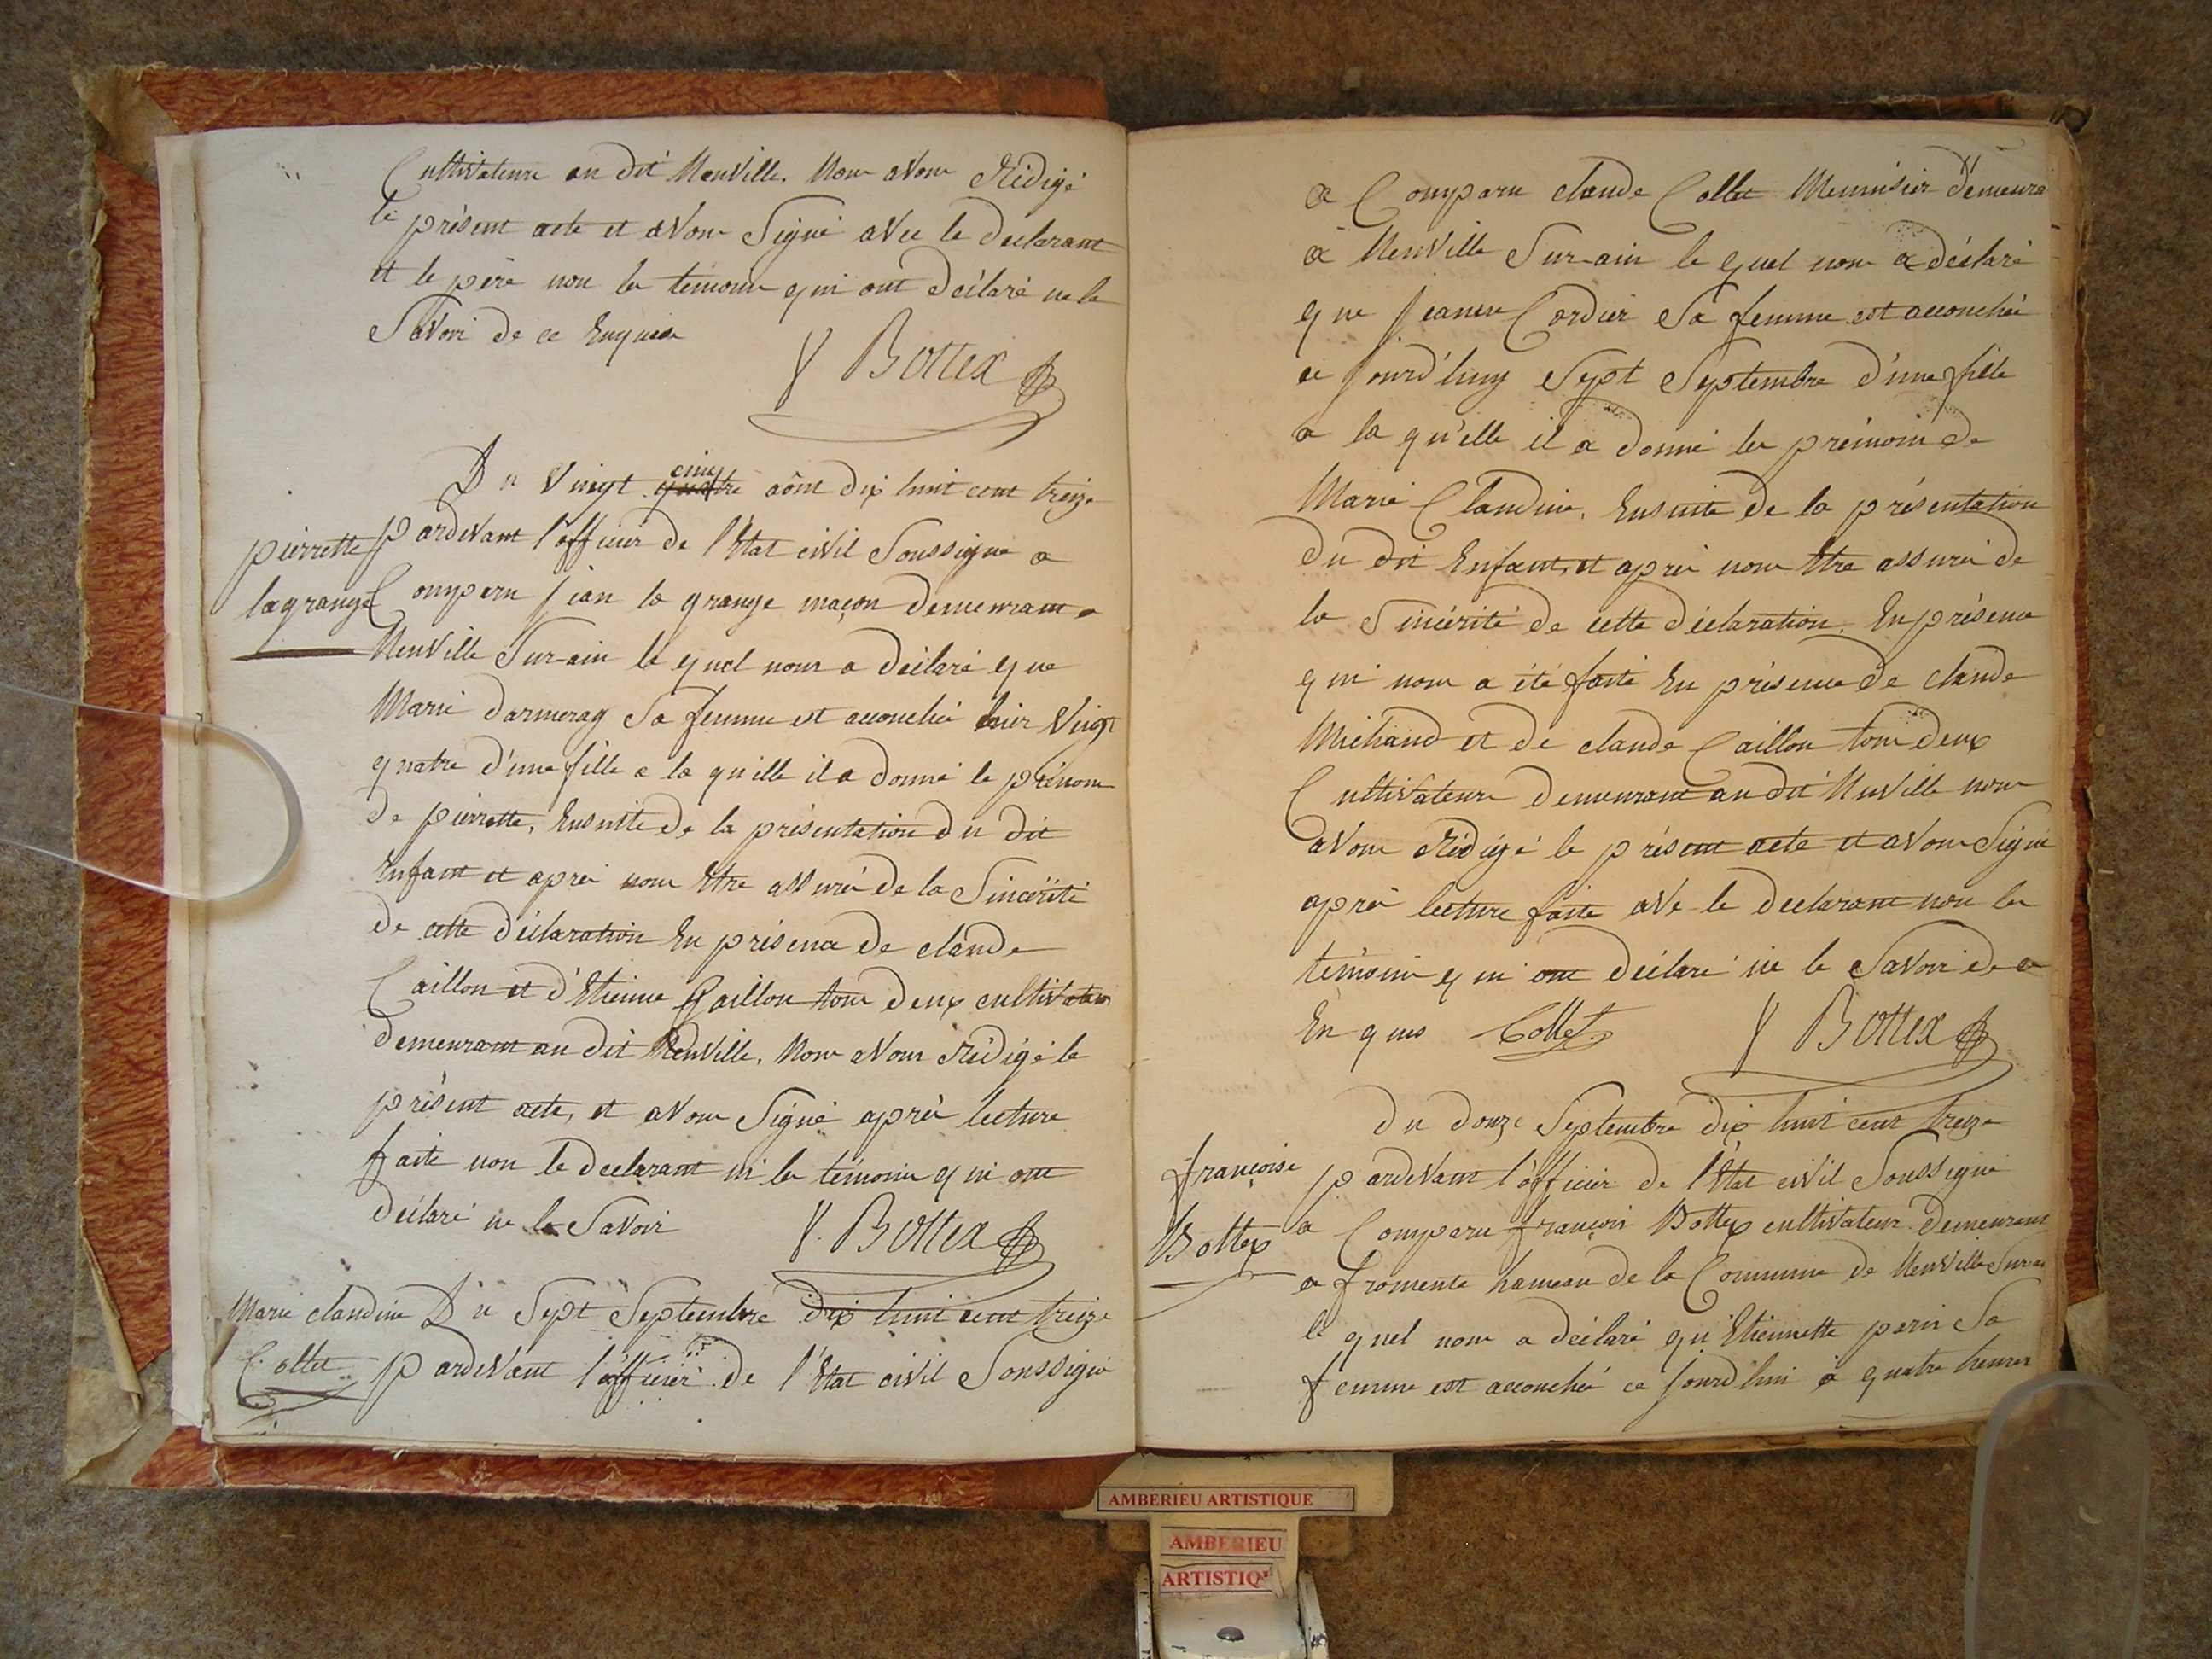 Cultivateurs au dit Neuville. Nous avons Rédigé
le présent acte et avons Signé avec le declarant
et le père non les temoins qui ont déclaré ne le
Savoir de ce Enquis
Bottex
Du Vingt quatre cinq aôut dix huit cent treize
pierrette
lagrange
pardevant l'officier de l'Etat civil Soussigné a
Comparu jean la grange maçon demeurant a
Neuville Sur-ain le quel nous a déclaré que
Marie sa femme est accouchée hier Vingt
quatre d'une fille a la quelle il a donné le prénom
de pierrette, Ensuite de la présentation du dit
Enfant et après nous Etre assuré de la Sincérité
de cette déclaration En présence de claude
Caillon et d'Etienne Caillon tous deux cultivateurs
demeurant au dit Neuville, Nous avons Rédigé le
présent acte, et avons Signé après lecture
faite non le declarant ni les témoins qui ont
déclaré ne le Savoir
Bottex
Marie claudine
Collet
Du Sept Septembre dix huit cent treize
pardevant l'officier de l'Etat civil Soussigné
a Comparu claude Collet Meunisier demeura
a Neuville Sur-ain le quel nous a déclaré
que jeanne Cordier Sa femme est accouchée
ce jourd'huy Sept Septembre d'une fille
a la qu'elle il a donné les prénoms de
Marie Claudine, Ensuite de la présentation
du dit Enfant, et après nous Etre assuré de
la Sincérité de cette déclaration, En présence
qui nous a été faite En présence de claude
Michaud et de claude Caillon tous deux
Cultivateurs demeurant au dit Neuville nous
avons Rédigé le présent acte et avons Signé
après lecture faite ave le declarant non les
témoins qui ont déclaré ne le Savoir de ce
En quis Collet Bottex
Du douze Septembre dix huit cent treize
françoise
Bottex
pardevant l'officier de l'Etat civil Soussigné
a Comparu françois Bottex cultivateur demeurant
a fromente hameau de la Commune de Neuville Sur-ain
le quel nous a déclaré qu'Etiennette perin Sa
femme est accouchée ce jourd'hui à quatre heures
AMBERIEU ARTISTIQUE
AMBERIEU
ARTISTIQ